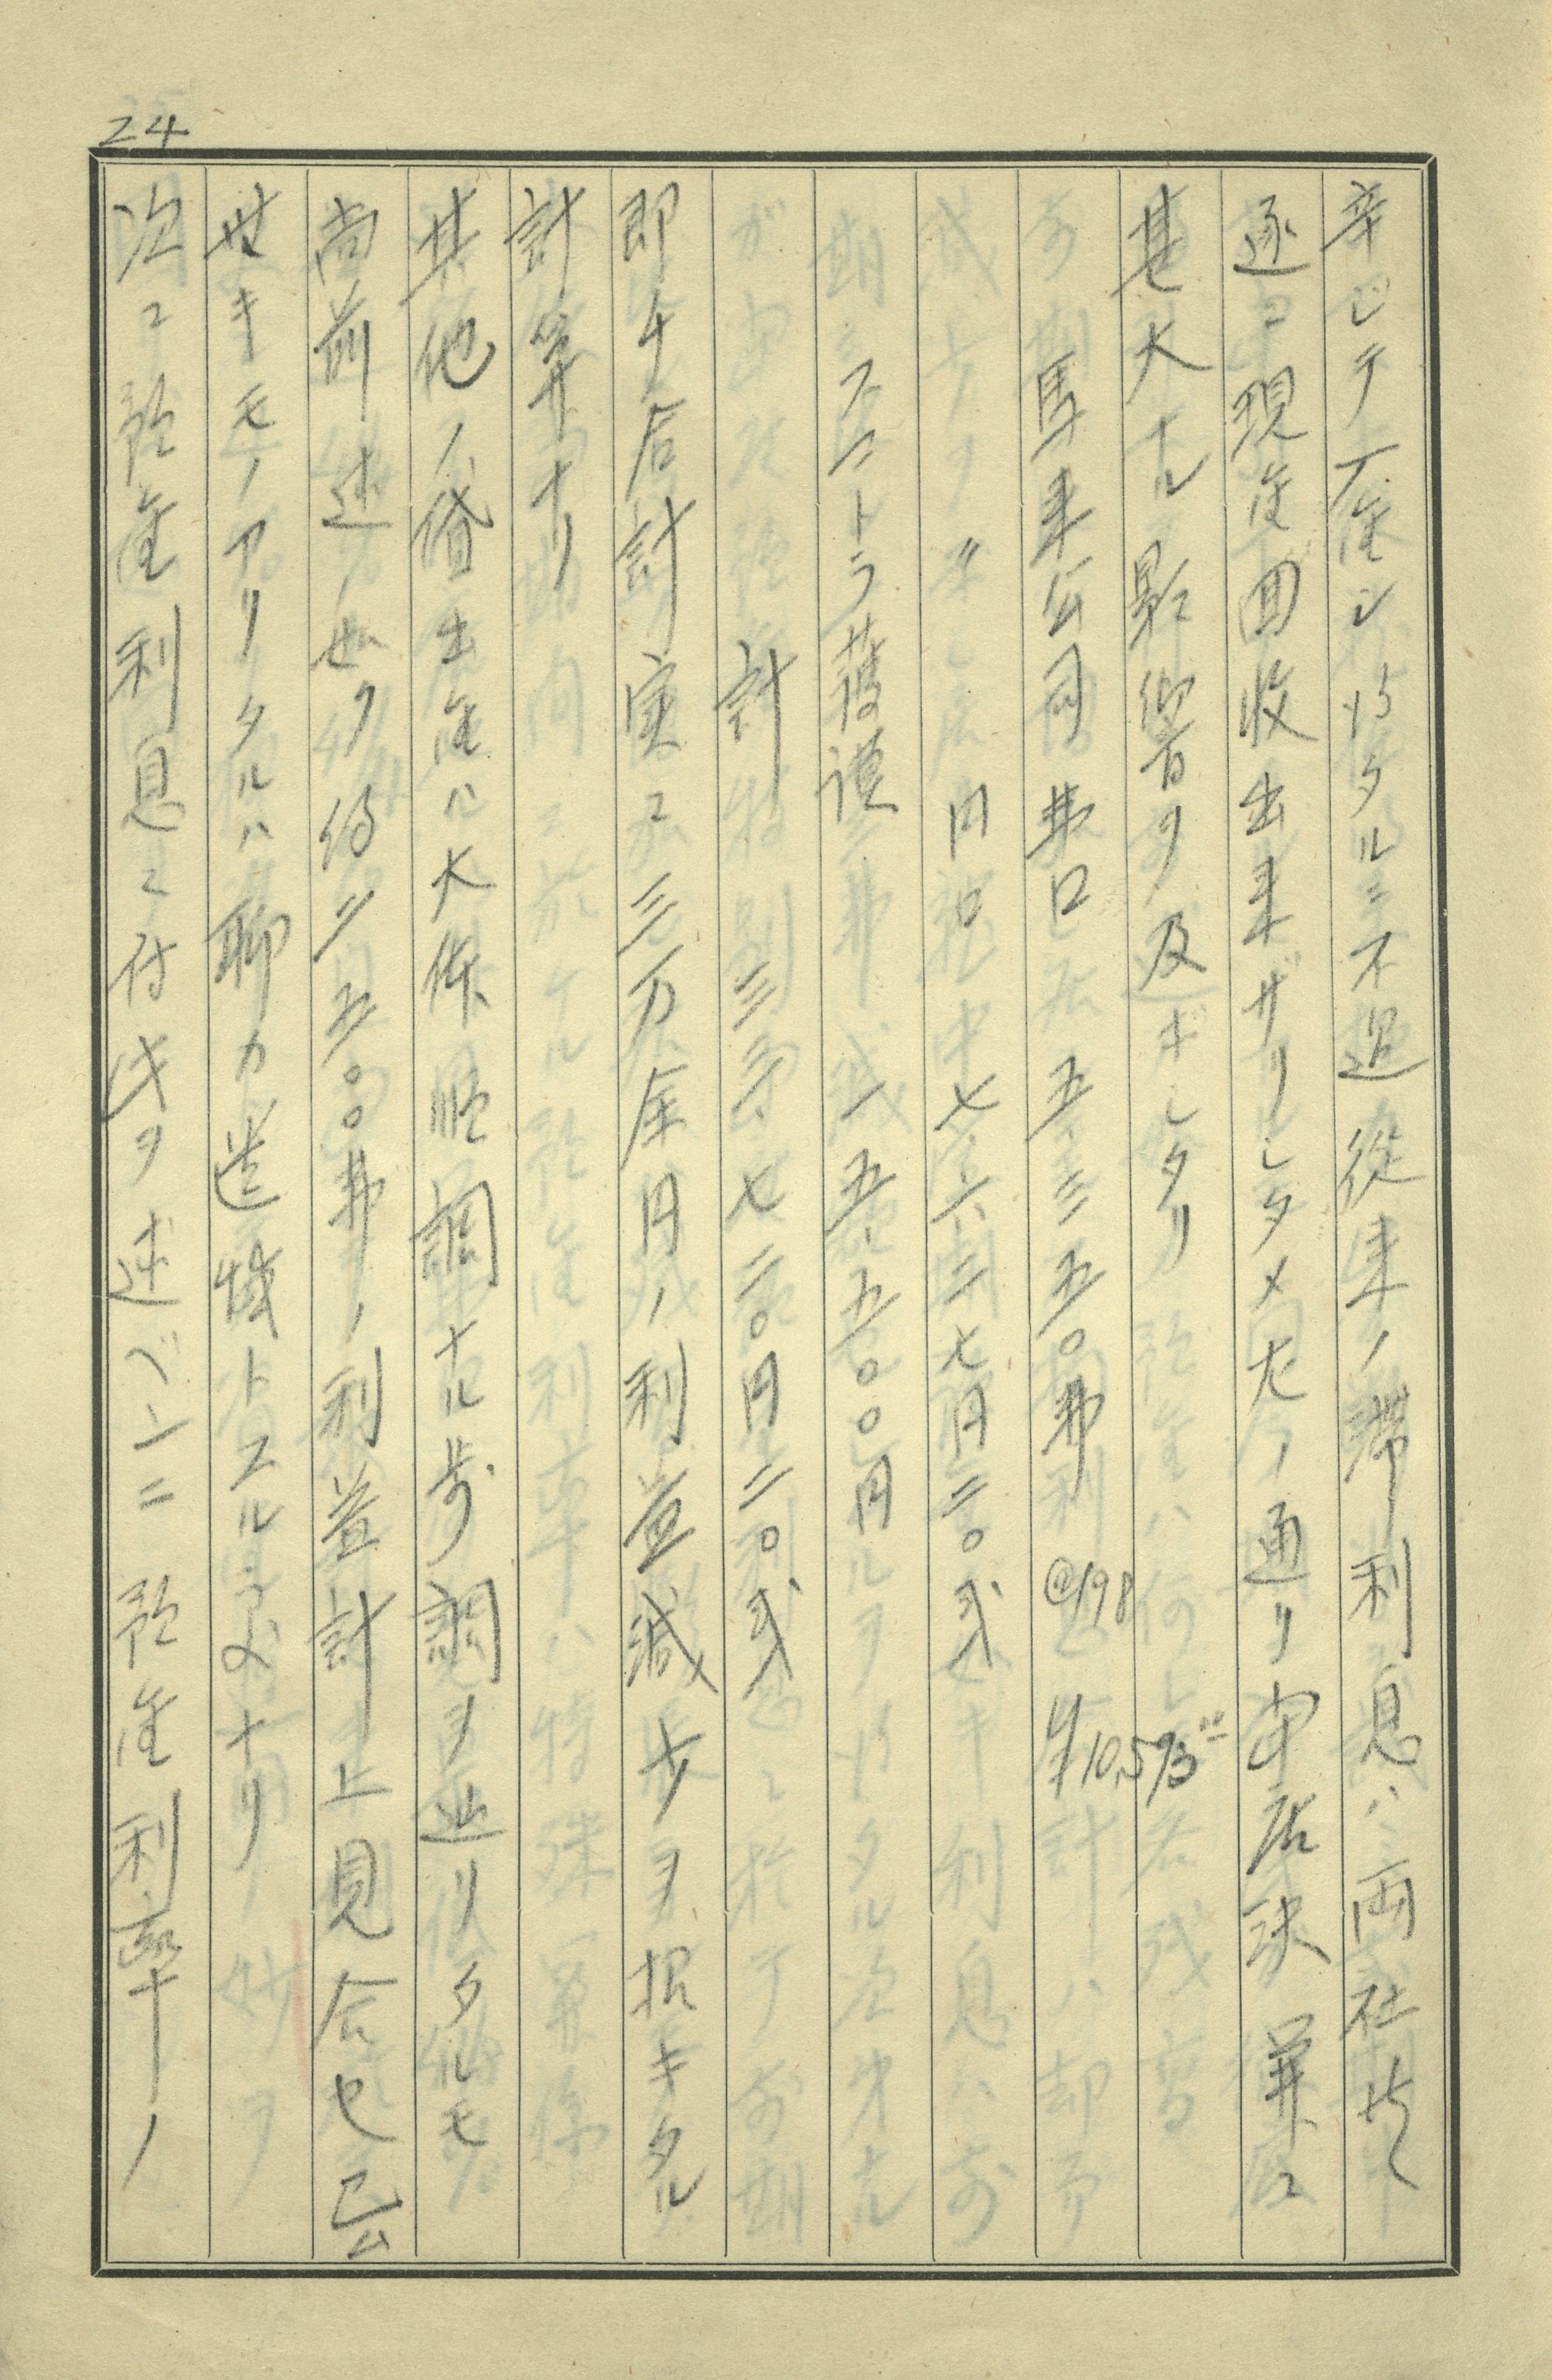 24
辛ジテ入金シ得タルニ不過従来ノ滞利息ハ両社共
逐ニ現金回收出来ザリシタメ左ノ通リ当店決算ニ
甚大ナル影響ヲ及ボシタリ
馬来公司 弗口 五、三五〇弗 @198 ¥10,593
〃 円口 七、六二七円二〇戋
スマトラ護謨 一五、五〇〇円
計 三三、七二〇円二〇戋
即チ合計実ニ三万余円ノ利益減少ヲ招キタル
計算ナリ
其他ノ貸出金ハ大体順調ナル歩調ヲ辿リタルモ
尚前述ノ如ク約二五〇〇弗ノ利益計上見合セ已ム
無キモノアリタルハ聊カ遺憾トスル所ナリ
次ニ預金利息ニ付キ述ベンニ預金利率ノ